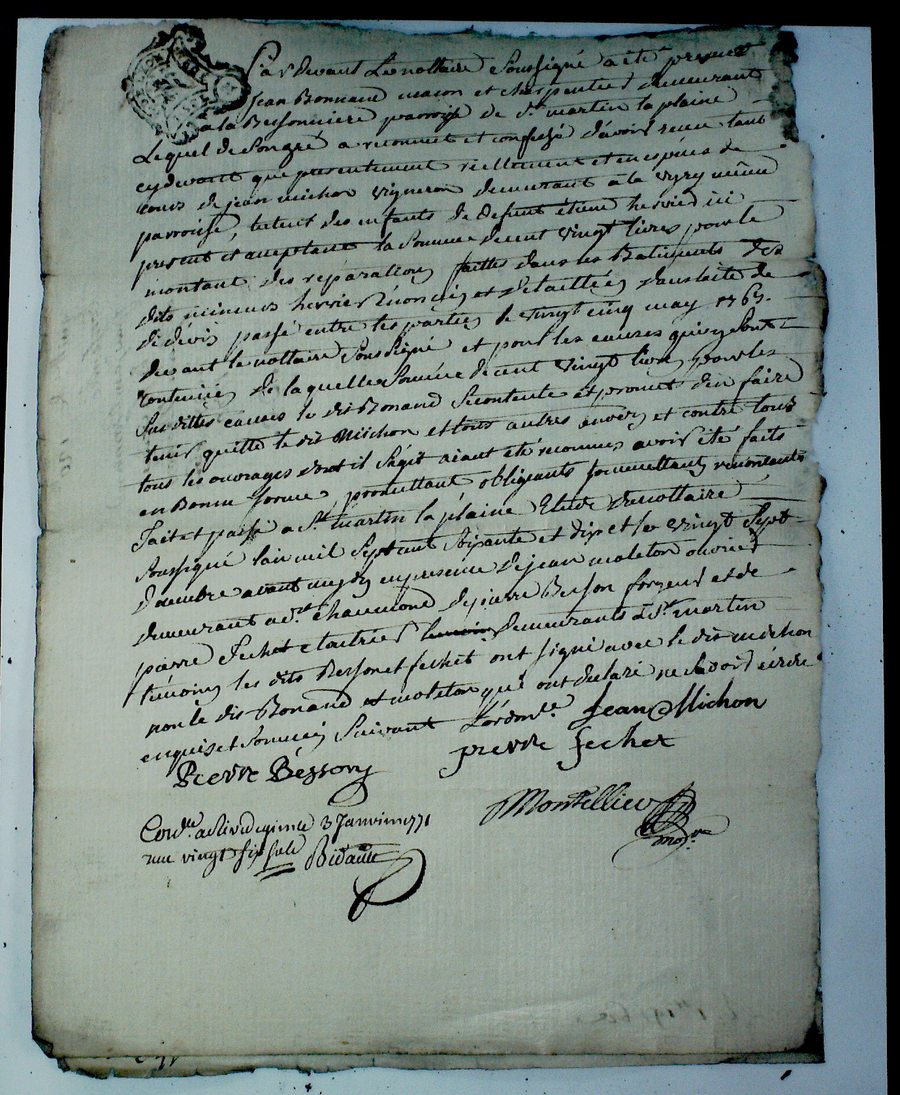 Par devant Le nottaire Soussigné a été present
Jean Bonnand macon et charpentier demeurant
a la Bessonniere paroisse de St. martin la plaine
Lequel de Son gré a reconnut et confessé d'avoir receu tant
cy devant que presentement reellement et en espéces de
cours de jean michon vigneron demeurant à la même
paroisse, tuteur des enfants de defunt étiene hervier ici
present et acceptant la Somme de cent vingt livres pour le
montant des réparations faitte dans les Batiments des
dits mineurs hervier énoncées et détaillées dans
de dévis passé entre les parties le vingt cinq may
devant le nottaire Soussigné et pour les causes qui y Sont
contenües de laquelle Somme de cent vingt livres pour les
Sus dittes causes le dit Bonand Se contente et promet d'en faire
tenir quitte le dit Michon et tous autres envers et contre tous
tous les ouvrages dont il s'agit aiant été reconnus avoir été faits
en Bonne forme, obligeants Soumettants renonceants
Fait et passé a St. martin la plaine Etude du nottaire
Soussigné L'an mil Sept cent Soixante et dix et le vingt Sept
decembre avant midy en presence de jean moleton
demeurant a St. chaumond de pierre Besson forgeur et de
pierre fechet demeurants a St. martin
témoins les dits Besson et fechet ont signé avec le dit michon
non le dit Bonand et moleton qui ont declaré ne Savoir écrire
enquis et Sommés Suivant L'ordonce. Jean Michon
Pierre Besson pierre fechet
Montellier
nore
Conlle. a Rive de gier le 3 Janvier 1771
reçu vingt six sols